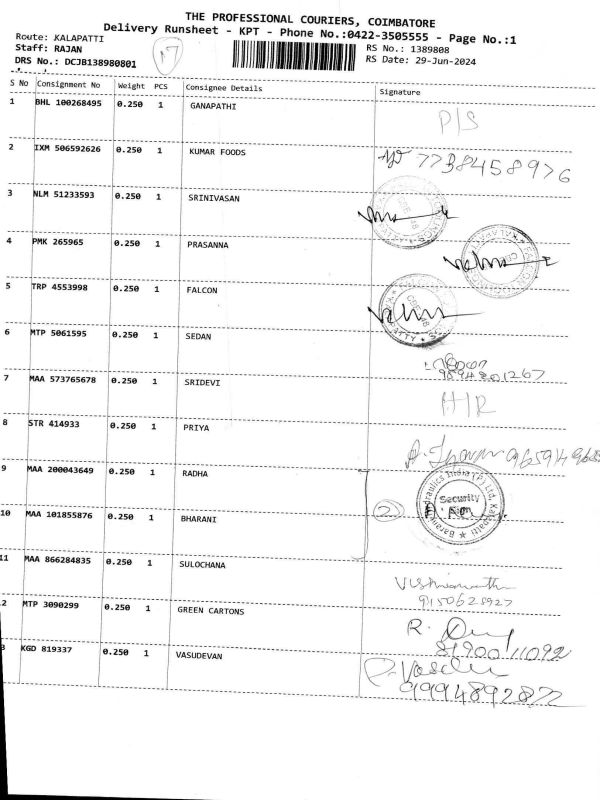 THE PROFESSIONAL COURIERS, COIMBATORE
Delivery Runsheet - KPT - Phone No.:0422-3505555 - Page No.:1
Route: KALAPATTI
RS No.: 1389808
Staff: RAJAN
RS Date: 29-Jun-2024
DRS No.: DCJB138980801
17
S No Consignment No Weight PCS Consignee Details Signature
1 BHL 100268495 0.250 1 GANAPATHI
P/S
2 IXM 506592626 0.250 1 KUMAR FOODS
7738458976
3 NLM 51233593 0.250 1 SRINIVASAN
4 PMK 265965 0.250 1 PRASANNA
5 TRP 4553998 0.250 1 FALCON
6 MTP 5061595 0.250 1 SEDAN
7 MAA 573765678 0.250 1 SRIDEVI
H/R
8 STR 414933 0.250 1 PRIYA
9 MAA 200043649 0.250 1 RADHA
2
Security
Sign
10 MAA 101855876 0.250 1 BHARANI
11 MAA 866284835 0.250 1 SULOCHANA
9150628927
2 MTP 3090299 0.250 1 GREEN CARTONS
R.
8190011092
3 KGD 819337 0.250 1 VASUDEVAN
P. Vasdev
9994892872